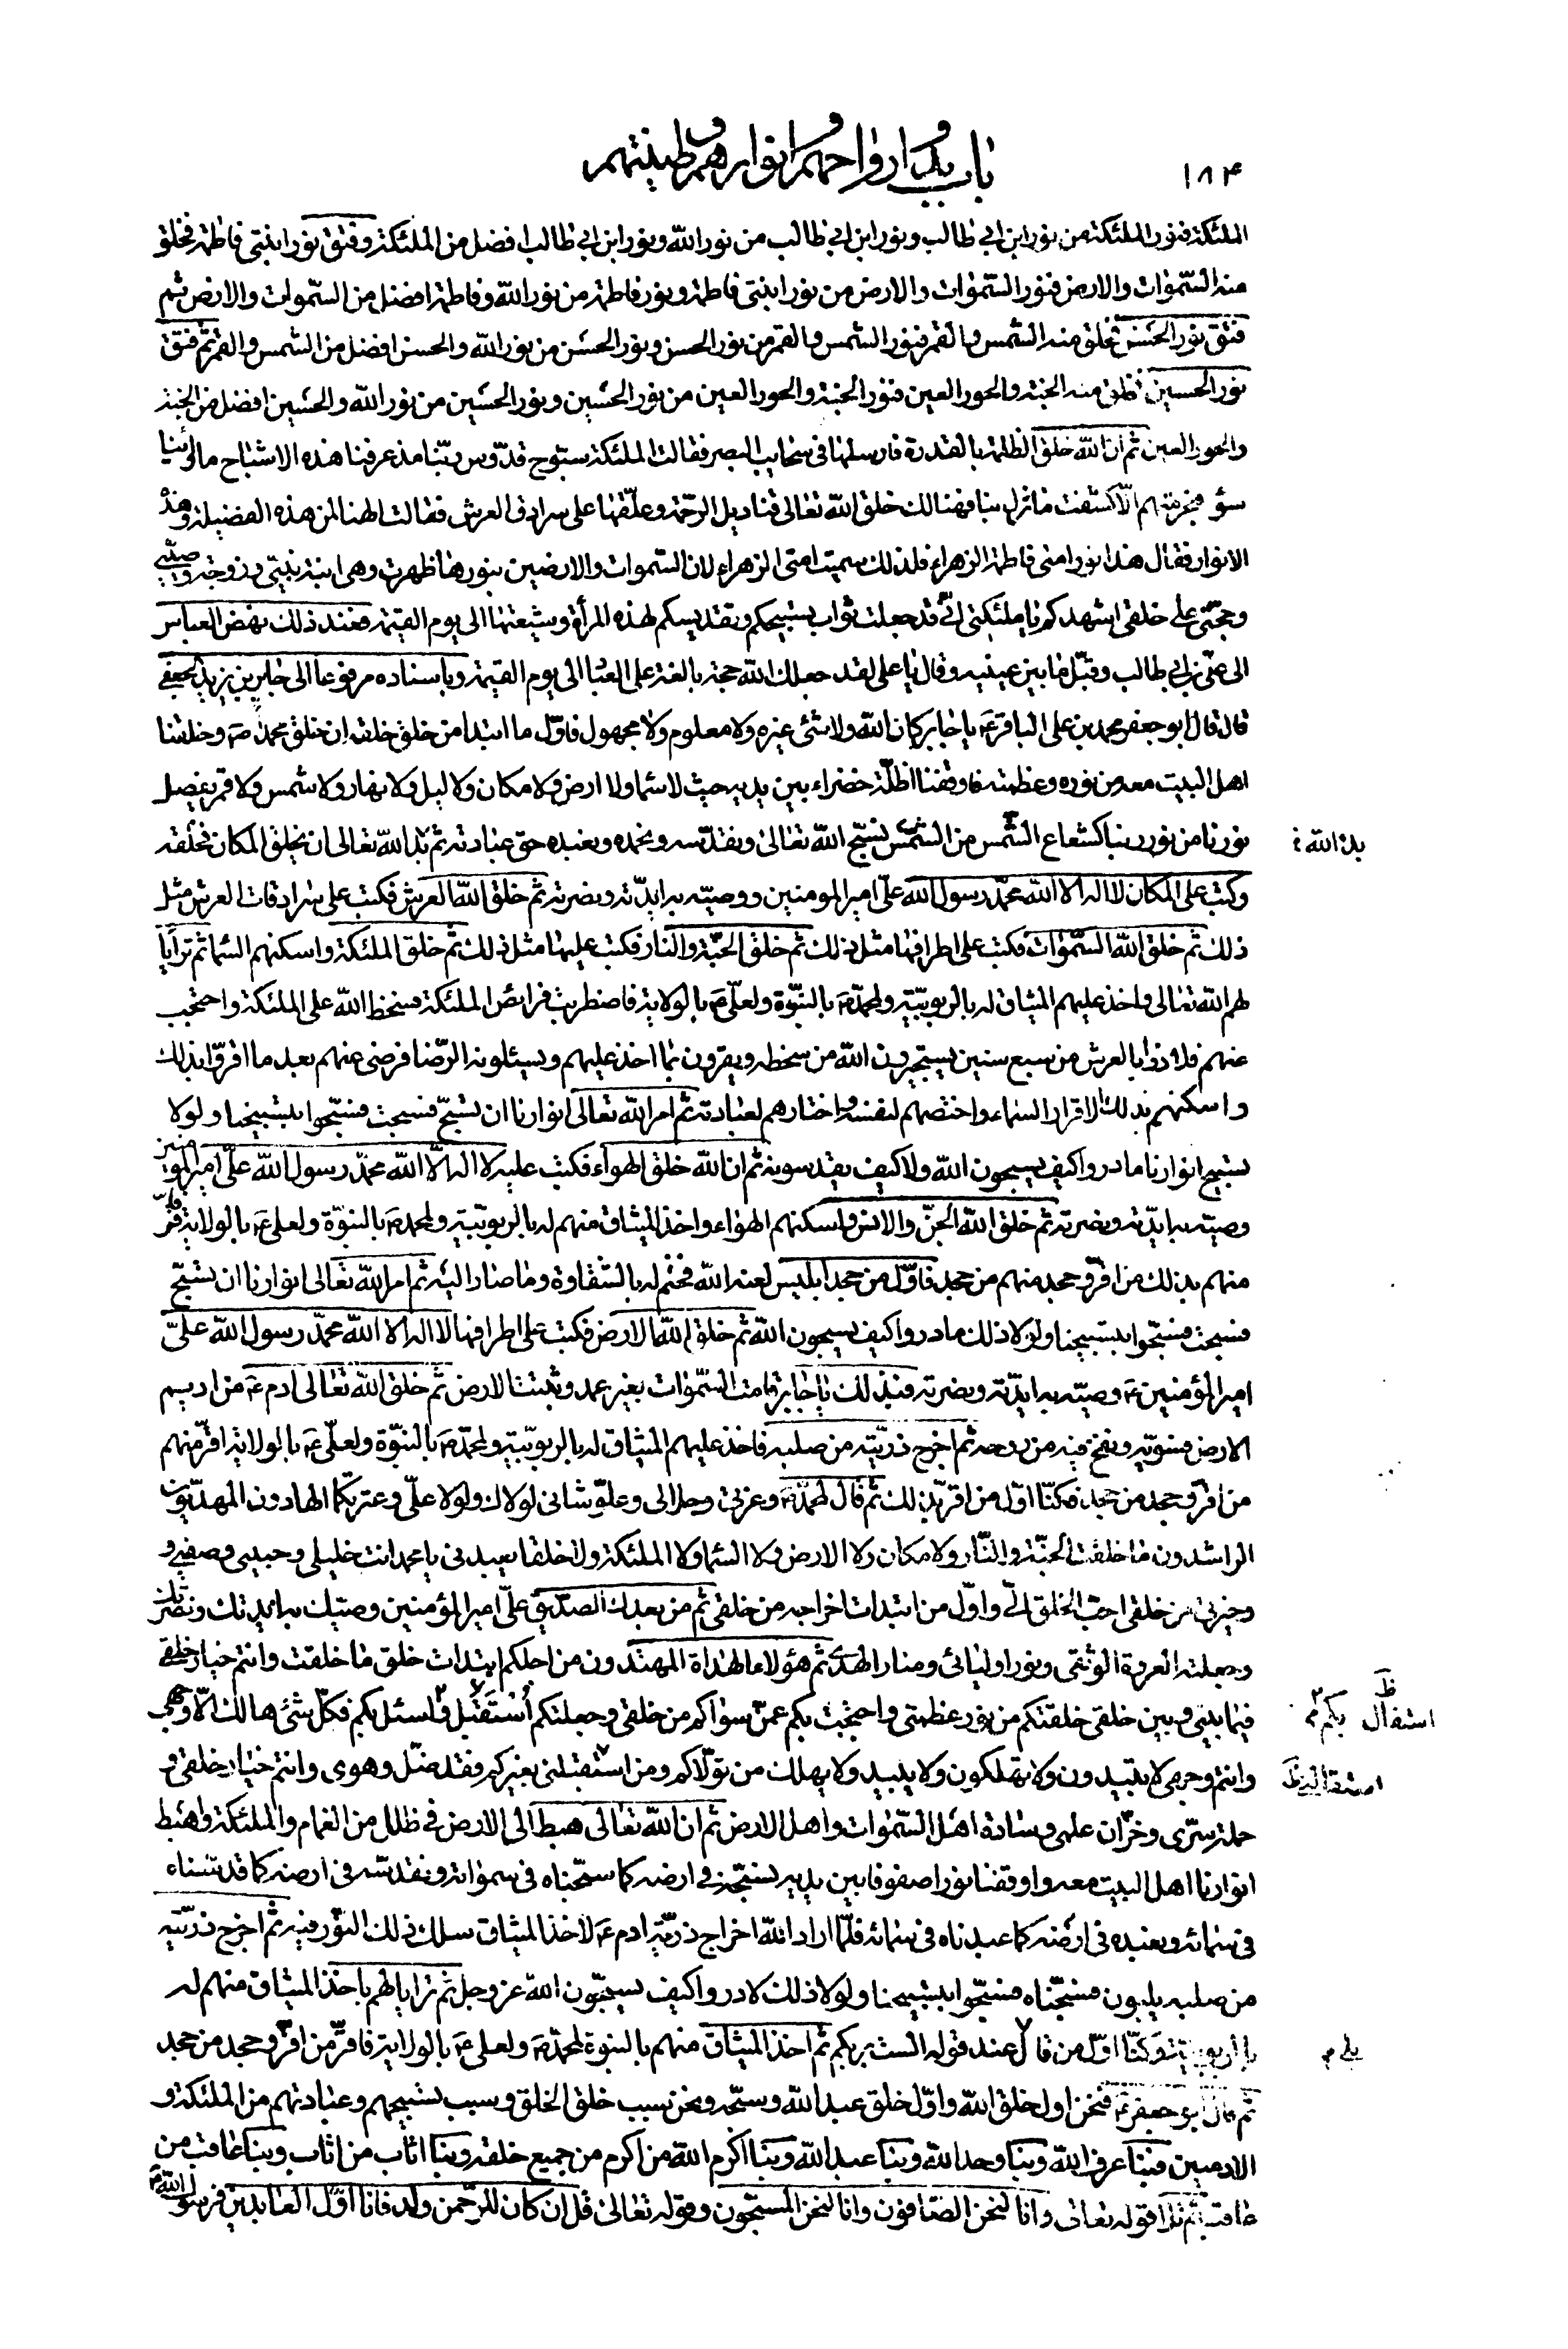 باب بدو ارواحهم و انوارهم و طينتهم
١٨۴
الملئكة فنور الملئكة من نور ابن ابي طالب ونور ابن ابي طالب من نور الله ونور ابن ابي طالب افضل من الملئكة وفتق نور ابنتي فاطمة فخلق
منه السّموات والارض فنور السّموات والارض من نور ابنتي فاطمة ونور فاطمة من نور الله وفاطمة افضل من السّموات والارض ثم
فتق نور الحسن فخلق منه الشمس والقمر فنور الشمس والقمر من نور الحسن ونور الحسن من نور الله والحسن افضل من الشمس والقمر ثم فتق
نور الحسين فخلق منه الجنة والحور العين فنور الجنة والحور العين من نور الحسين ونور الحسين من نور الله والحسين افضل من الجنة
والحور العين ثم ان الله خلق الظلمة بالقدرة فارسلها في سحايب البصر فقالت الملئكة سبّوح قدّوس ربّنا مذ عرفنا هذه الاشباح ما راينا
سوء فبحرمتهم الّا كشفت ما نزل بنا فهنالك خلق الله تعالى قناديل الرحمة وعلّقها على سرادق العرش فقالت الهنا لمن هذه الفضيلة وهذه
الانوار فقال هذا نور امتي فاطمة الزهراء فلذلك سميت امتي الزهراء لان السّموات والارضين بنورها ظهرت وهي ابنة نبيّي وزوجة وصيّي
وحجّتي على خلقي اشهدكم يا ملئكتي انّي قد جعلت ثواب تسبيحكم وتقديسكم لهذه المرأة وشيعتها الى يوم القيمة فعند ذلك نهض العباس
الى عليّ بن ابي طالب وقبّل ما بين عينيه وقال يا علي لقد جعلك الله حجة بالغة على العباد الى يوم القيمة وباسناده مرفوعا الى جابر بن يزيد الجعفي
قال قال ابو جعفر محمد بن علي الباقر ع يا جابر كان الله ولا شئ غيره ولا معلوم ولا مجهول فاوّل ما ابتدا من خلق خلقه ان خلق محمدا ص وخلقنا
اهل البيت معه من نوره وعظمته فاوقفنا اظلّة خضراء بين يديه حيث لا سماء ولا ارض ولا مكان ولا ليل ولا نهار ولا شمس ولا قمر يفصل
نورنا من نور ربنا كشعاع الشمس من الشمس نسبّح الله تعالى ونقدّسه ونحمده ونعبده حق عبادته ثم بدا لله تعالى ان يخلق المكان فخلقه
بدا لله
وكتب على المكان لا اله الا الله محمّد رسول الله عليّ امير المومنين ووصيّه به ايّدته ونصرته ثم خلق الله العرش فكتب على سرادقات العرش مثل
ذلك ثم خلق الله السّموات فكتب على اطرافها مثل ذلك ثم خلق الجنّة والنار فكتب عليها مثل ذلك ثم خلق الملئكة واسكنهم السماء ثم ترايا
لهم الله تعالى واخذ عليهم الميثاق له بالربوبيّة ولمحمّد ص بالنبّوة ولعليّ ع بالولاية فاضطربت فرائص الملئكة فسخط الله على الملئكة واحتجب
عنهم فلاذوا بالعرش من سبع سنين يستجيرون الله من سخطه ويقرون بما اخذ عليهم ويسئلونه الرّضا فرضى عنهم بعد ما اقرّوا بذلك
واسكنهم بذلك الاقرار السّماء واختصهم لنفسه واختارهم لعبادته ثم امر الله تعالى انوارنا ان تسبّح فسبحت فسبّحوا بتسبيحنا ولولا
تسبيح انوارنا ما دروا كيف يسبحون الله ولا كيف يقدسونه ثم ان الله خلق الهواء فكتب عليه لا اله الّا الله محمّد رسول الله عليّ امير المؤمنين
وصيّه به ايّدته ونصرته ثم خلق الله الجنّ والانس واسكنهم الهواء واخذ الميثاق منهم له بالربوبيّة ولمحمد ص بالنبوّة ولعلي ع بالولاية فاقرّ
منهم بذلك من اقرّ وجحد منهم من جحد فاوّل من جحد ابليس لعنه الله فختم له بالشقاوة وما صار اليه ثم امر الله تعالى انوارنا ان تسبّح
فسبحت فسبّحوا بتسبيحنا ولولا ذلك ما دروا كيف يسبحون الله ثم خلق الله الارض فكتب على اطرافها لا اله الا الله محمّد رسول الله عليّ
امير المؤمنين ع وصيّه به ايدّته ونصرته فبذلك يا جابر قامت السّموات بغير عمد وثبتت الارض ثم خلق الله تعالى ادم ع من اديم
الارض فسوّيه ونفخ فيه من روحه ثم اخرج ذريّته من صلبه فاخذ عليهم الميثاق له بالربوبيّة ولمحمّد ص بالنبوّة ولعليّ ع بالولاية اقرّ منهم
من اقرّ وجحد من جحد فكنّا اوّل من اقرّ بذلك ثم قال لمحمّد ص وعزتي وجلالي وعلوّ شاني لولاك ولولا عليّ وعترتكما الهادون المهديّون
الراشدون ما خلقت الجنّة والنّار ولا مكان ولا الارض ولا السّماء ولا الملئكة ولا خلقا يعبدني يا محمد انت خليلي وحبيبي وصفيي و
وخيرتي من خلقي احبّ الخلق اليّ واوّل من ابتدات اخراجه من خلقي ثم من بعدك الصدّيق عليّ امير المؤمنين وصيّك به ايدتك ونصرتك
وجعلته العروة الوثقى ونور اوليائي ومنار الهدى ثم هؤلاء الهداة المهتدون من اجلكم ابتدات خلق ما خلقت وانتم خيار خلقي
فيما بيني وبين خلقي خلقتكم من نور عظمتي واحتجبت بكم عمّن سواكم من خلقي وجعلتكم أستقبل واسئل بكم فكلّ شئ هالك الّا وجهي
استقال بكم
وانتم وجهي لا تبيدون ولا تهلكون ولا يبيد ولا يهلك من تولّاكم ومن استقبلني بغيركم فقد ضلّ وهوى وانتم خيار خلقي و
حملة سرّي وخزّان علمي وسادة اهل السّموات واهل الارض ثم ان الله تعالى هبط الى الارض في ظلل من الغمام والملئكة واهبط
انوارنا اهل البيت معه واوقفنا نورا صفوفا بين يديه نسبّحه في ارضه كما سبّحناه في سمواته ونقدّسه في ارضه كما قدّسناه
في سمائه ونعبده في ارضه كما عبدناه في سمائه فلمّا اراد الله اخراج ذريّة ادم ع لاخذ الميثاق سلك ذلك النّور فيه ثم اخرج ذريّته
من صلبه يلبون فسبّحناه فسبّحوا بتسبيحنا ولولا ذلك لا دروا كيف يسبّحون الله عز وجل ثم ترايا لهم باخذ الميثاق منهم له
بالربوبية وكنّا اوّل من قال عند قوله الست بربكم ثم اخذ الميثاق منهم بالنبوة لمحمّد ص ولعلي ع بالولاية فاقرّ من اقرّ وجحد من جحد
ثم قال ابو جعفر ع فنحن اول خلق الله واوّل خلق عبد الله وسبّحه ونحن سبب خلق الخلق وسبب تسبيحهم وعبادتهم من الملئكة و
الادميين فبنا عرف الله وبنا وحد الله وبنا عبد الله وبنا اكرم الله من اكرم من جميع خلقه وبنا اثاب من اثاب وبنا عاقب من
عاقب ثم تلا قوله تعالى وانا لنحن الصّافون وانا لنحن المسبّحون وقوله تعالى قل ان كان للرّحمن ولد فانا اوّل العابدين فرسول الله